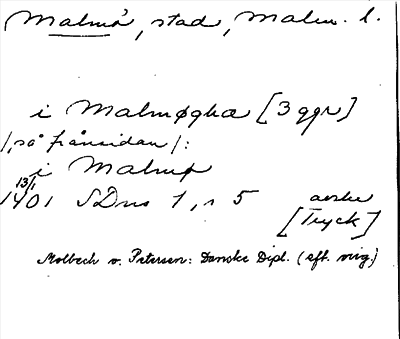 Malmö, stad, Malm. l.
i Malmøgha [3 ggr]
/, så frånsidan /:
i Malmø
13/1
1401 SDns 1, s 5 avskr
[Tryck]
Molbech o. Petersen: Danske Dipl. (eft. orig.)